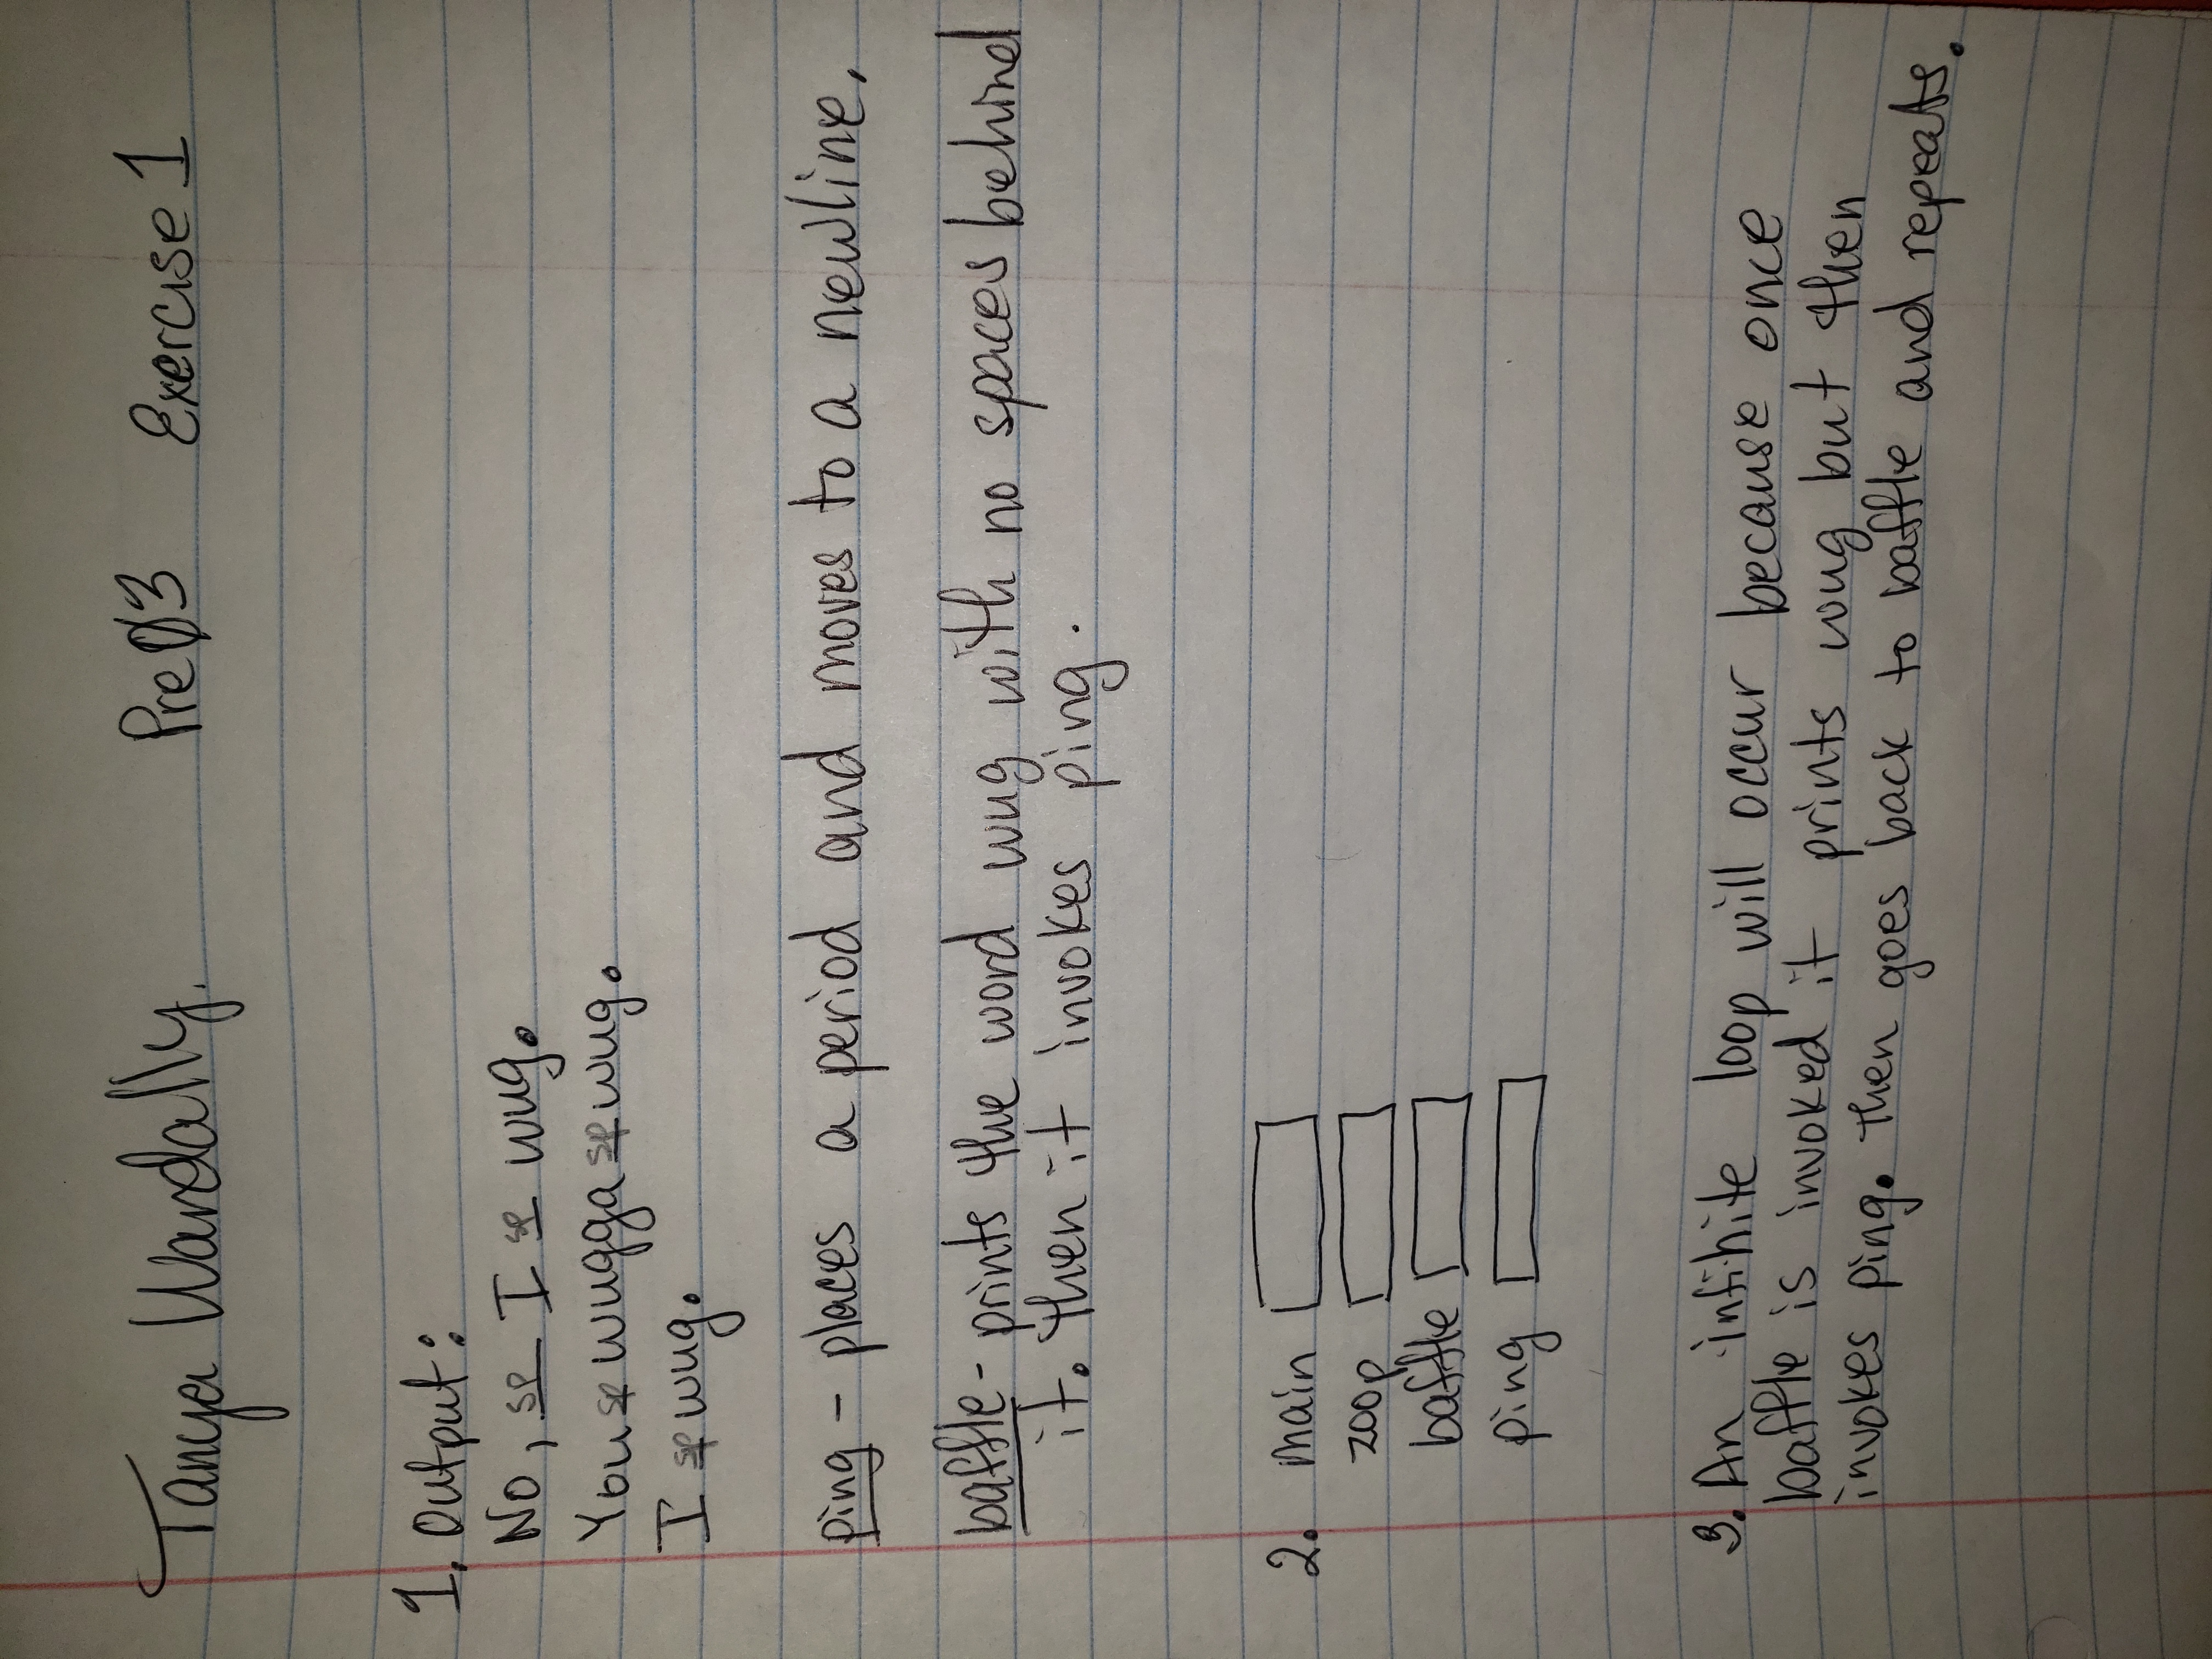 Tanya Wardally. Pre Ø3 Exercise 1
1. Output:
No, sp I sp wug.
You sp wugga sp wug.
I sp wug.
ping - places a period and moves to a newline.
baffle - prints the word wug with no spaces behind
it. Then it invokes ping.
2. main
zoop
baffle
ping
3. An infinite loop will occur because once
baffle is invoked it prints wug but then
invokes ping. Then goes back to baffle and repeats.